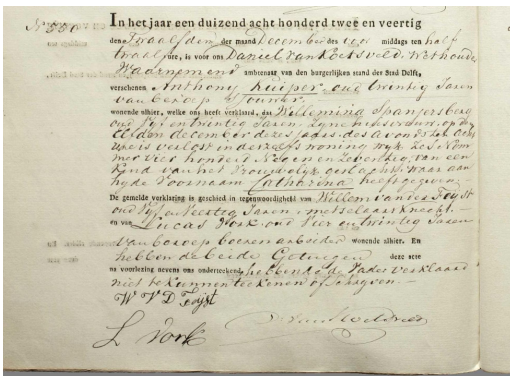 N° 550
In het jaar een duizend acht honderd twee en veertig
den Twaalfden der maand December des voor middags ten half
twaalf ure, is voor ons Daniel van Koetsveld, Wethouder
Waarnemend ambtenaar van den burgerlijken stand der Stad Delft,
verschenen Anthony Kuiper oud twintig Jaren
van beroep Touwer
wonende alhier, welke ons heeft verklaard, dat Willemina Spanjersberg
oud Vijf en twintig Jaren Zijne huisvrouw, op den
Elfden december dezes jaars des avonds ten acht
ure is verlost in derzelfs woning wijk Zes Num
mer vier honderd Negen en Zeventig, van een
Kind van het Vrouwelijk geslacht waar aan
hij de Voornaam Catharina heeft gegeven
De gemelde verklaring is geschied in tegenwoordigheid van Willem van der Feijst
oud Vijf en Jaren metselaars knecht
en van Lucas Vork oud Vier en twintig Jaren
van beroep boeren arbeider wonende alhier. En
hebben de beide Getuigen deze acte
na voorlezing nevens ons onderteekend, hebbende de Vader verklaard
niet te kunnen teekenen of schrijven
W V D Feijst
L Vork